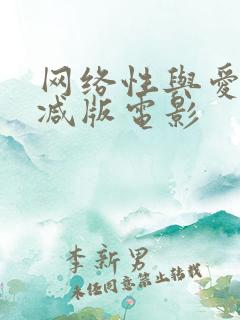 网络性與爱
减版电影
李新男
未经同意禁止转载